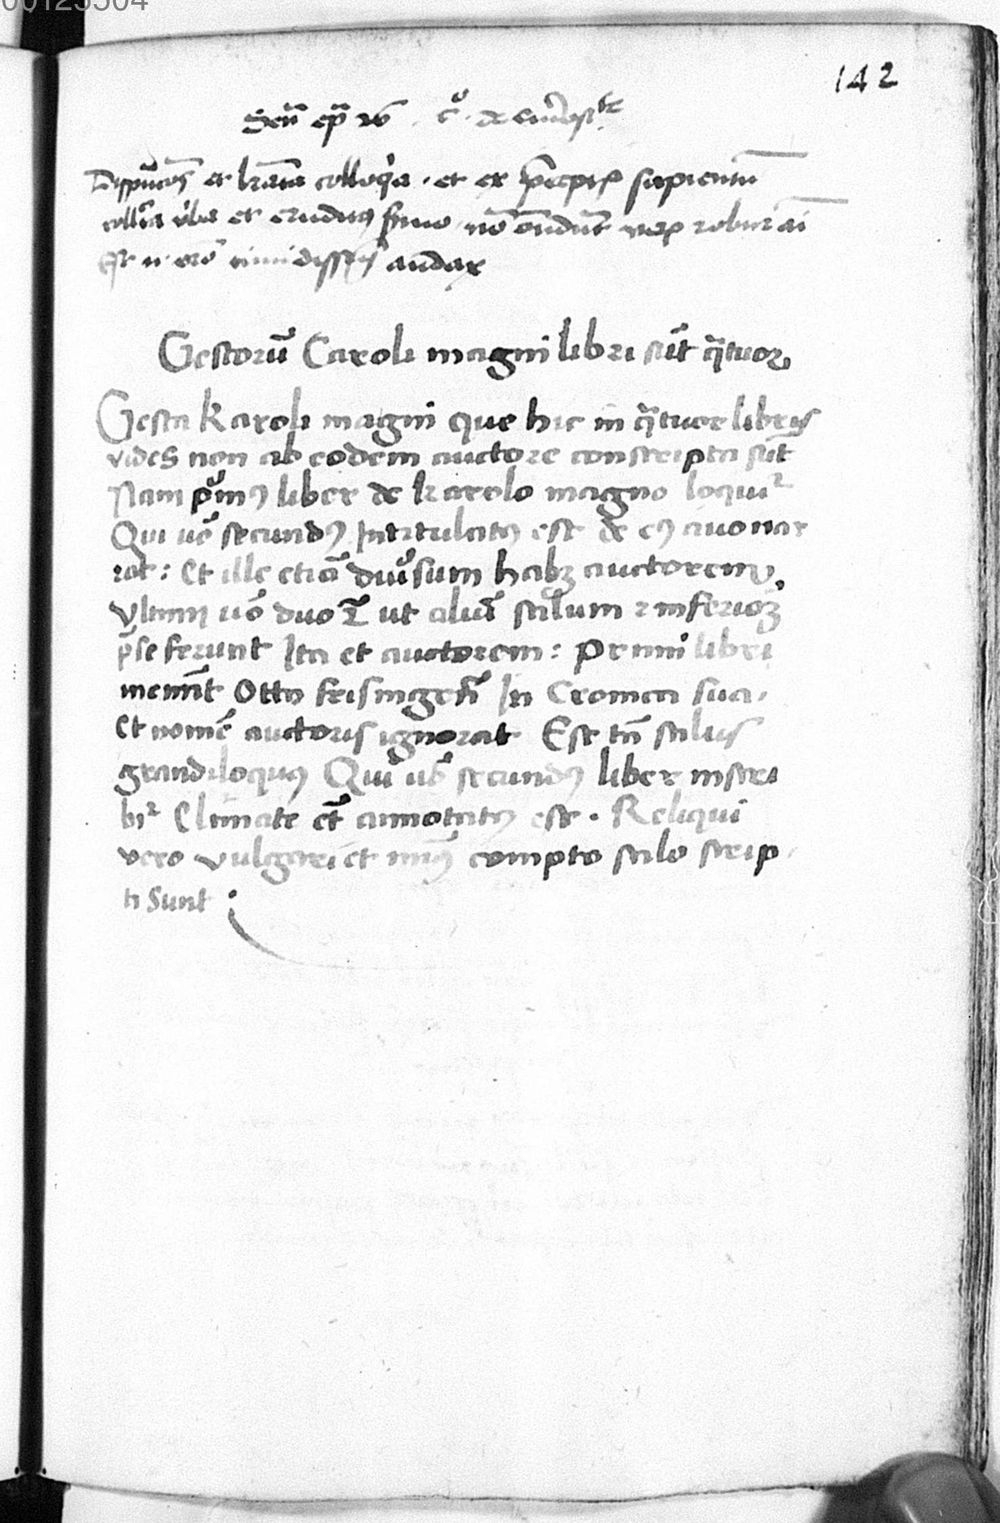 00125504
142
Disputacões et lrata colloqa. et ex pceptis sapientiū
collcta vba et eruditus smo. nō ondunt verū robur ai
Est n. orō timidissis audax
Gestorū Caroli magni libri sūt qtuor
Gesta Karoli magni que hic in qtuor libris
vides non ab eodem auctore conscripta sūt
Nam pmus liber de karolo magno loquir
Qui uo secundus Intitulatus est de eius auo nar
rat: Et ille etiā diuisum habz auctorem,
Vltimi uo duo ut aliū stilum et inferiorz
pse ferunt Ita et auctorem: Primi libri
meminit Otto frisingēn In Cronica sua.
Et nomē auctoris ignorat Est tn stilus
grandiloquus Qui uo secundus liber inscri
bir Climate et annotatus est. Reliqui
vero vulgari et minus compto stilo scrip
ti sunt